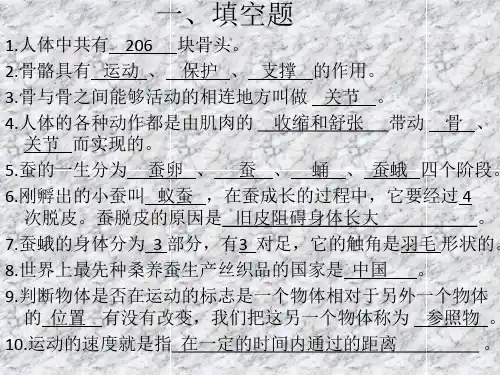 一、填空题
1.人体中共有 206 块骨头。
2.骨骼具有 运动 、 保护 、 支撑 的作用。
3.骨与骨之间能够活动的相连地方叫做 关节 。
4.人体的各种动作都是由肌肉的 收缩和舒张 带动 骨 、
关节 而实现的。
5.蚕的一生分为 蚕卵 、 蚕 、 蛹 、 蚕蛾 四个阶段。
6.刚孵出的小蚕叫 蚁蚕 ，在蚕成长的过程中，它要经过 4
次脱皮。蚕脱皮的原因是 旧皮阻碍身体长大 。
7.蚕蛾的身体分为 3 部分，有3 对足，它的触角是羽毛 形状的。
8.世界上最先种桑养蚕生产丝织品的国家是 中国 。
9.判断物体是否在运动的标志是一个物体相对于另外一个物体
的 位置 有没有改变，我们把这另一个物体称为 参照物 。
10.运动的速度就是指 在一定的时间内通过的距离 。